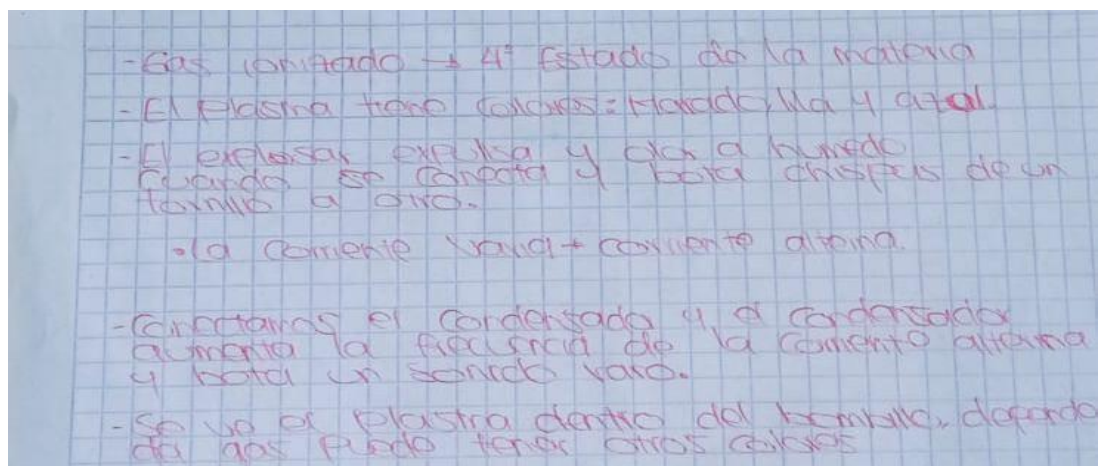 - Gas ionizado → 4° Estado de la materia
- El Plasma tiene colores: Morado, lila y azul
- El explosar expulsa y olor a humedo
cuando se conecta y bota chispas de un
tornillo a otro.
• la corriente varia → corriente alterna.
- Conectamos el condensado y el condensador
aumenta la frecuencia de la corriente alterna
y bota un sonido raro.
- Se ve el plastma dentro del bombillo, depende
del gas puede tener otros colores